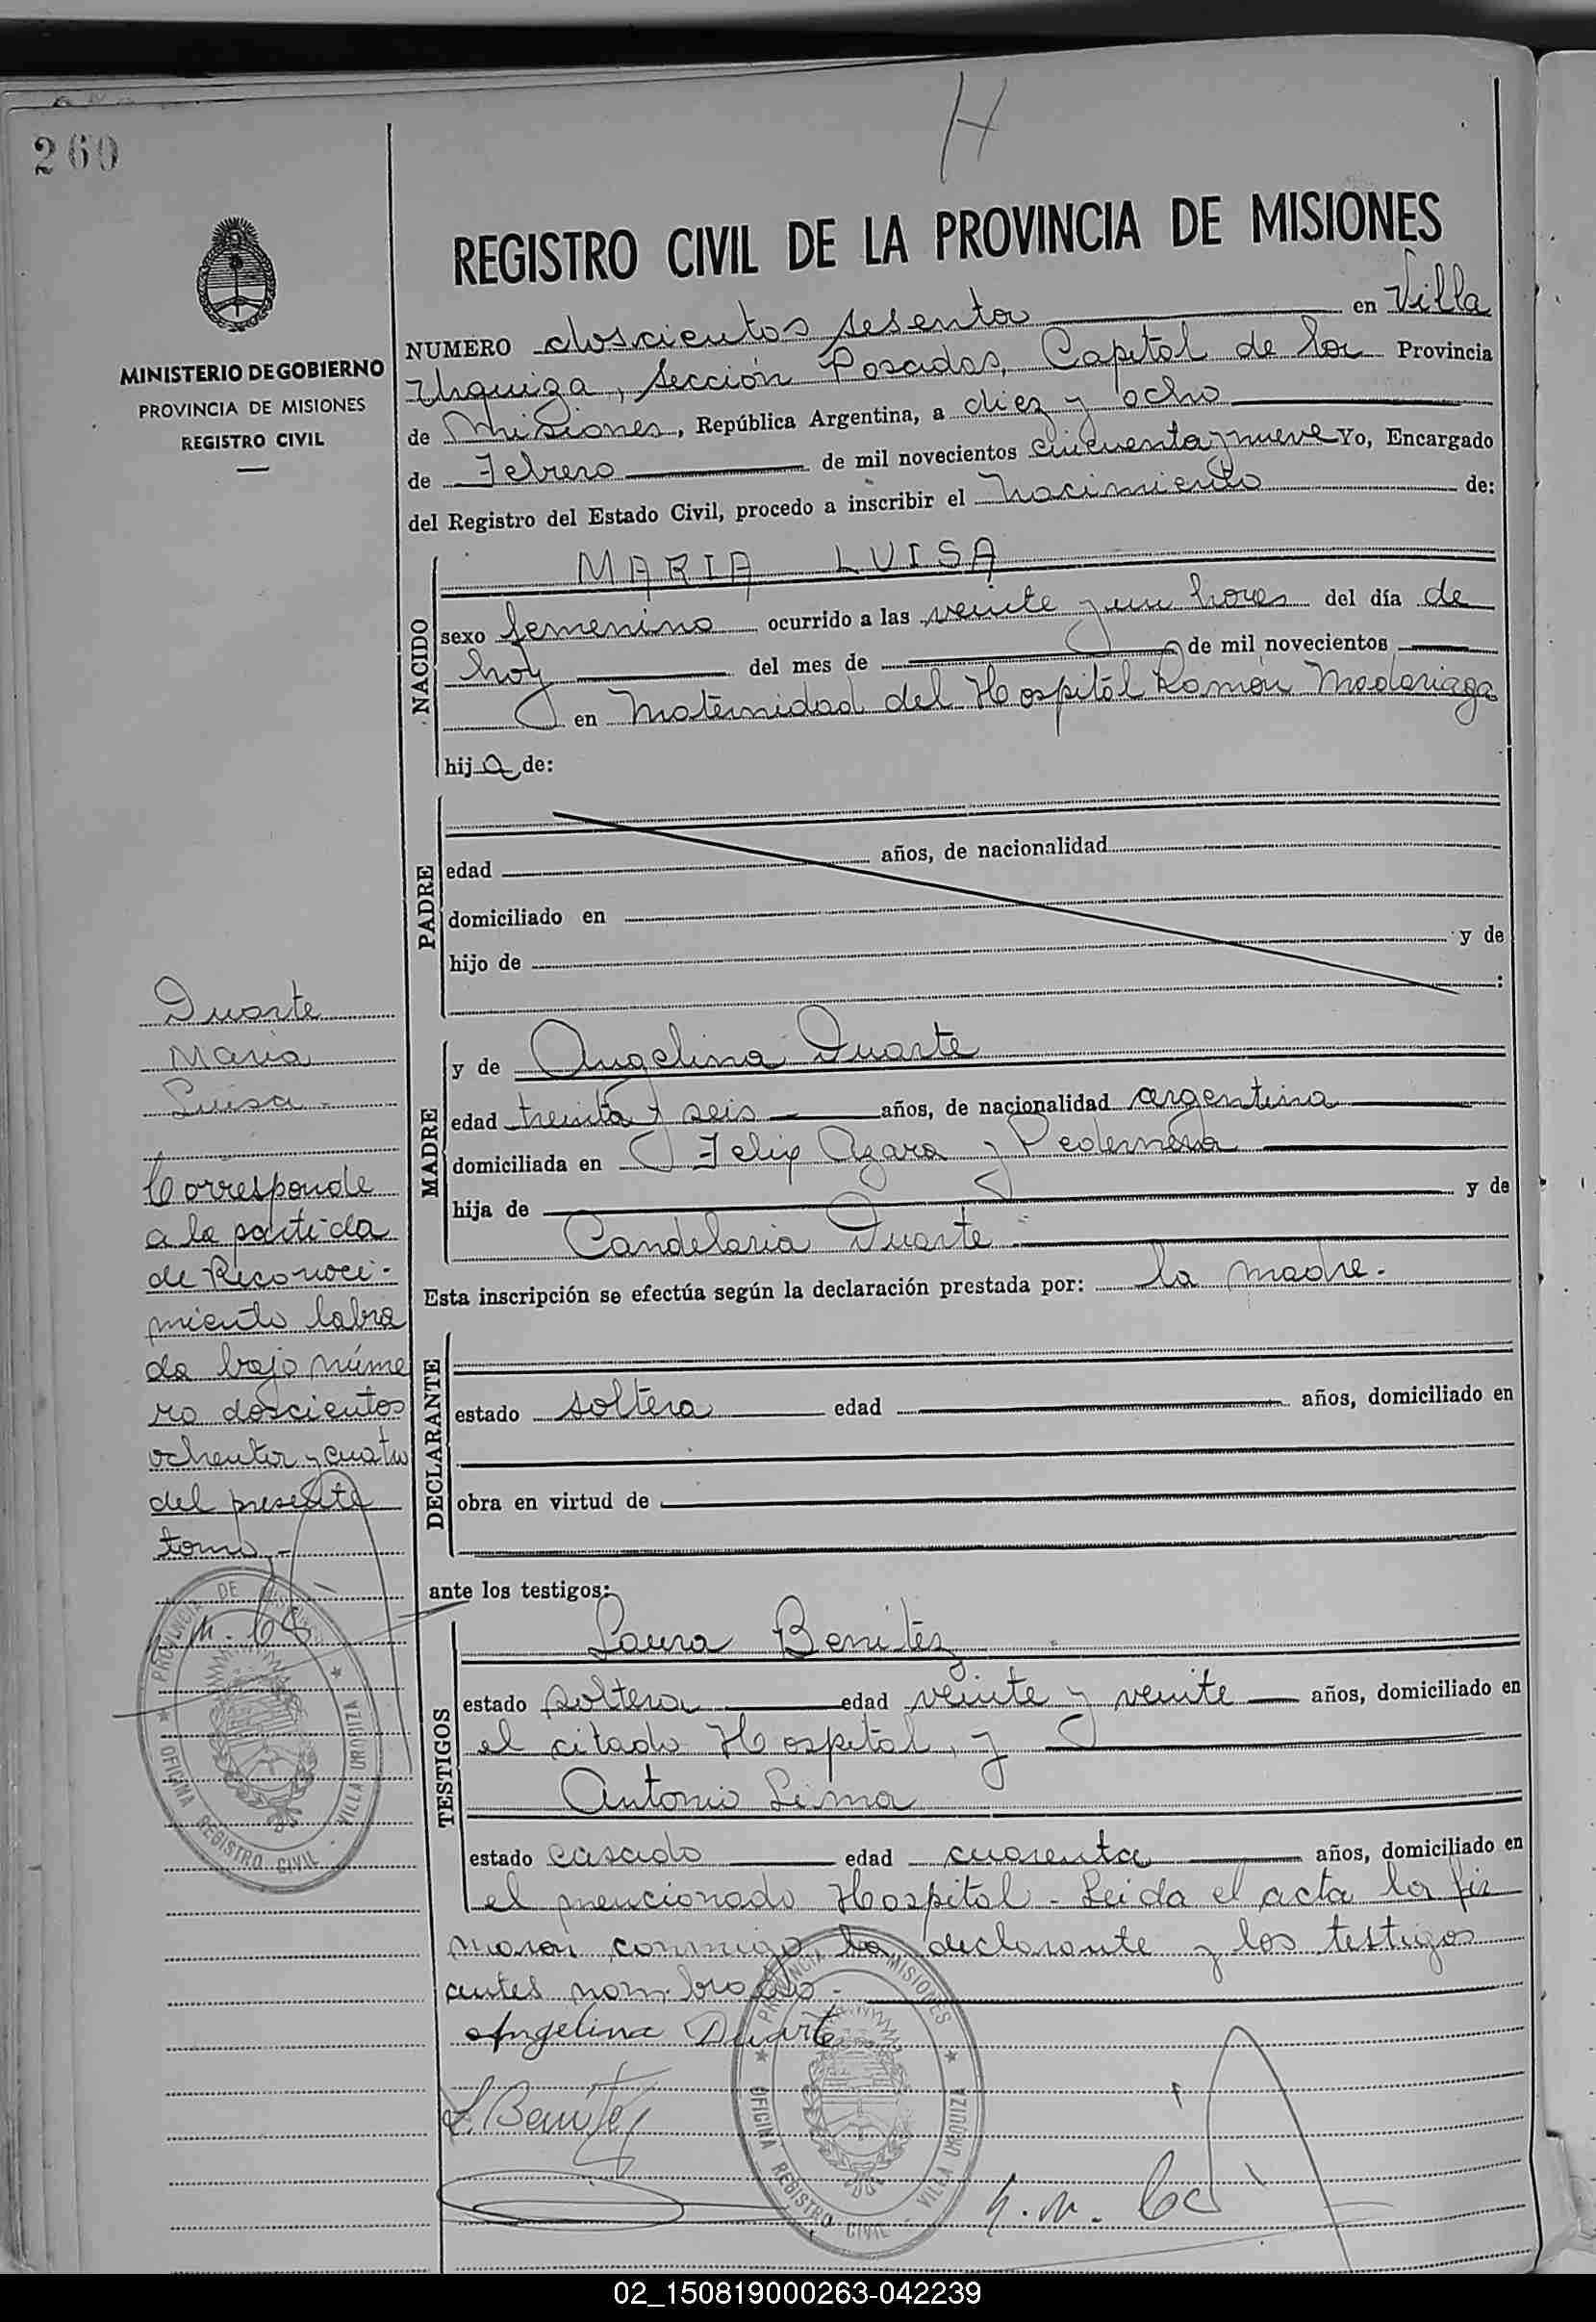 H
260
MINISTERIO DE GOBIERNO
PROVINCIA DE MISIONES
REGISTRO CIVIL
REGISTRO CIVIL DE LA PROVINCIA DE MISIONES
NUMERO doscientos sesenta en Villa
Urquiza, sección Posadas, Capital de la Provincia
de Misiones, República Argentina, a diez y ocho
de Febrero de mil novecientos cincuenta y nueve Yo, Encargado
del Registro del Estado Civil, procedo a inscribir el nacimiento de:
NACIDO
MARIA LUISA
sexo femenino ocurrido a las veinte y un horas del día de
hoy del mes de de mil novecientos
en Maternidad del Hospital Ramón Madariaga
hija de:
PADRE
edad años, de nacionalidad
domiciliado en
hijo de y de
:
MADRE
y de Angelina Duarte
edad treinta y seis años, de nacionalidad argentina
domiciliada en Felix Azara y Pedernera
hija de y de
Candelaria Duarte
Esta inscripción se efectúa según la declaración prestada por: la madre.
DECLARANTE
estado soltera edad años, domiciliado en
obra en virtud de
ante los testigos:
TESTIGOS
Laura Benitez
estado soltera edad veinte y veinte años, domiciliado en
el citado Hospital, y
Antonio Lima
estado casado edad cuarenta años, domiciliado en
el mencionado Hospital - Leida el acta la fir
maron conmigo, la declarante y los testigos
antes nombrado -
Angelina Duarte
L. Benitez
Duarte
Maria
Luisa -
Corresponde
a la partida
de Reconoci-
miento labra
da bajo núme
ro doscientos
ochenta y cuatro
del presente
tomo, -
PROVINCIA DE MISIONES
OFICINA REGISTRO CIVIL - VILLA URQUIZA
PROVINCIA DE MISIONES
OFICINA REGISTRO CIVIL - VILLA URQUIZA
02_150819000263-042239